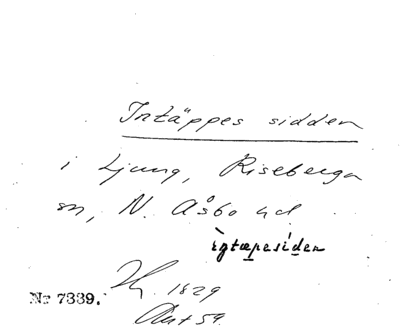 Intäppes sidden
i Ljung, Riseberga
sn, N. Åsbo hd
ìŋtæpesíden
1829
Nr 7339.
59